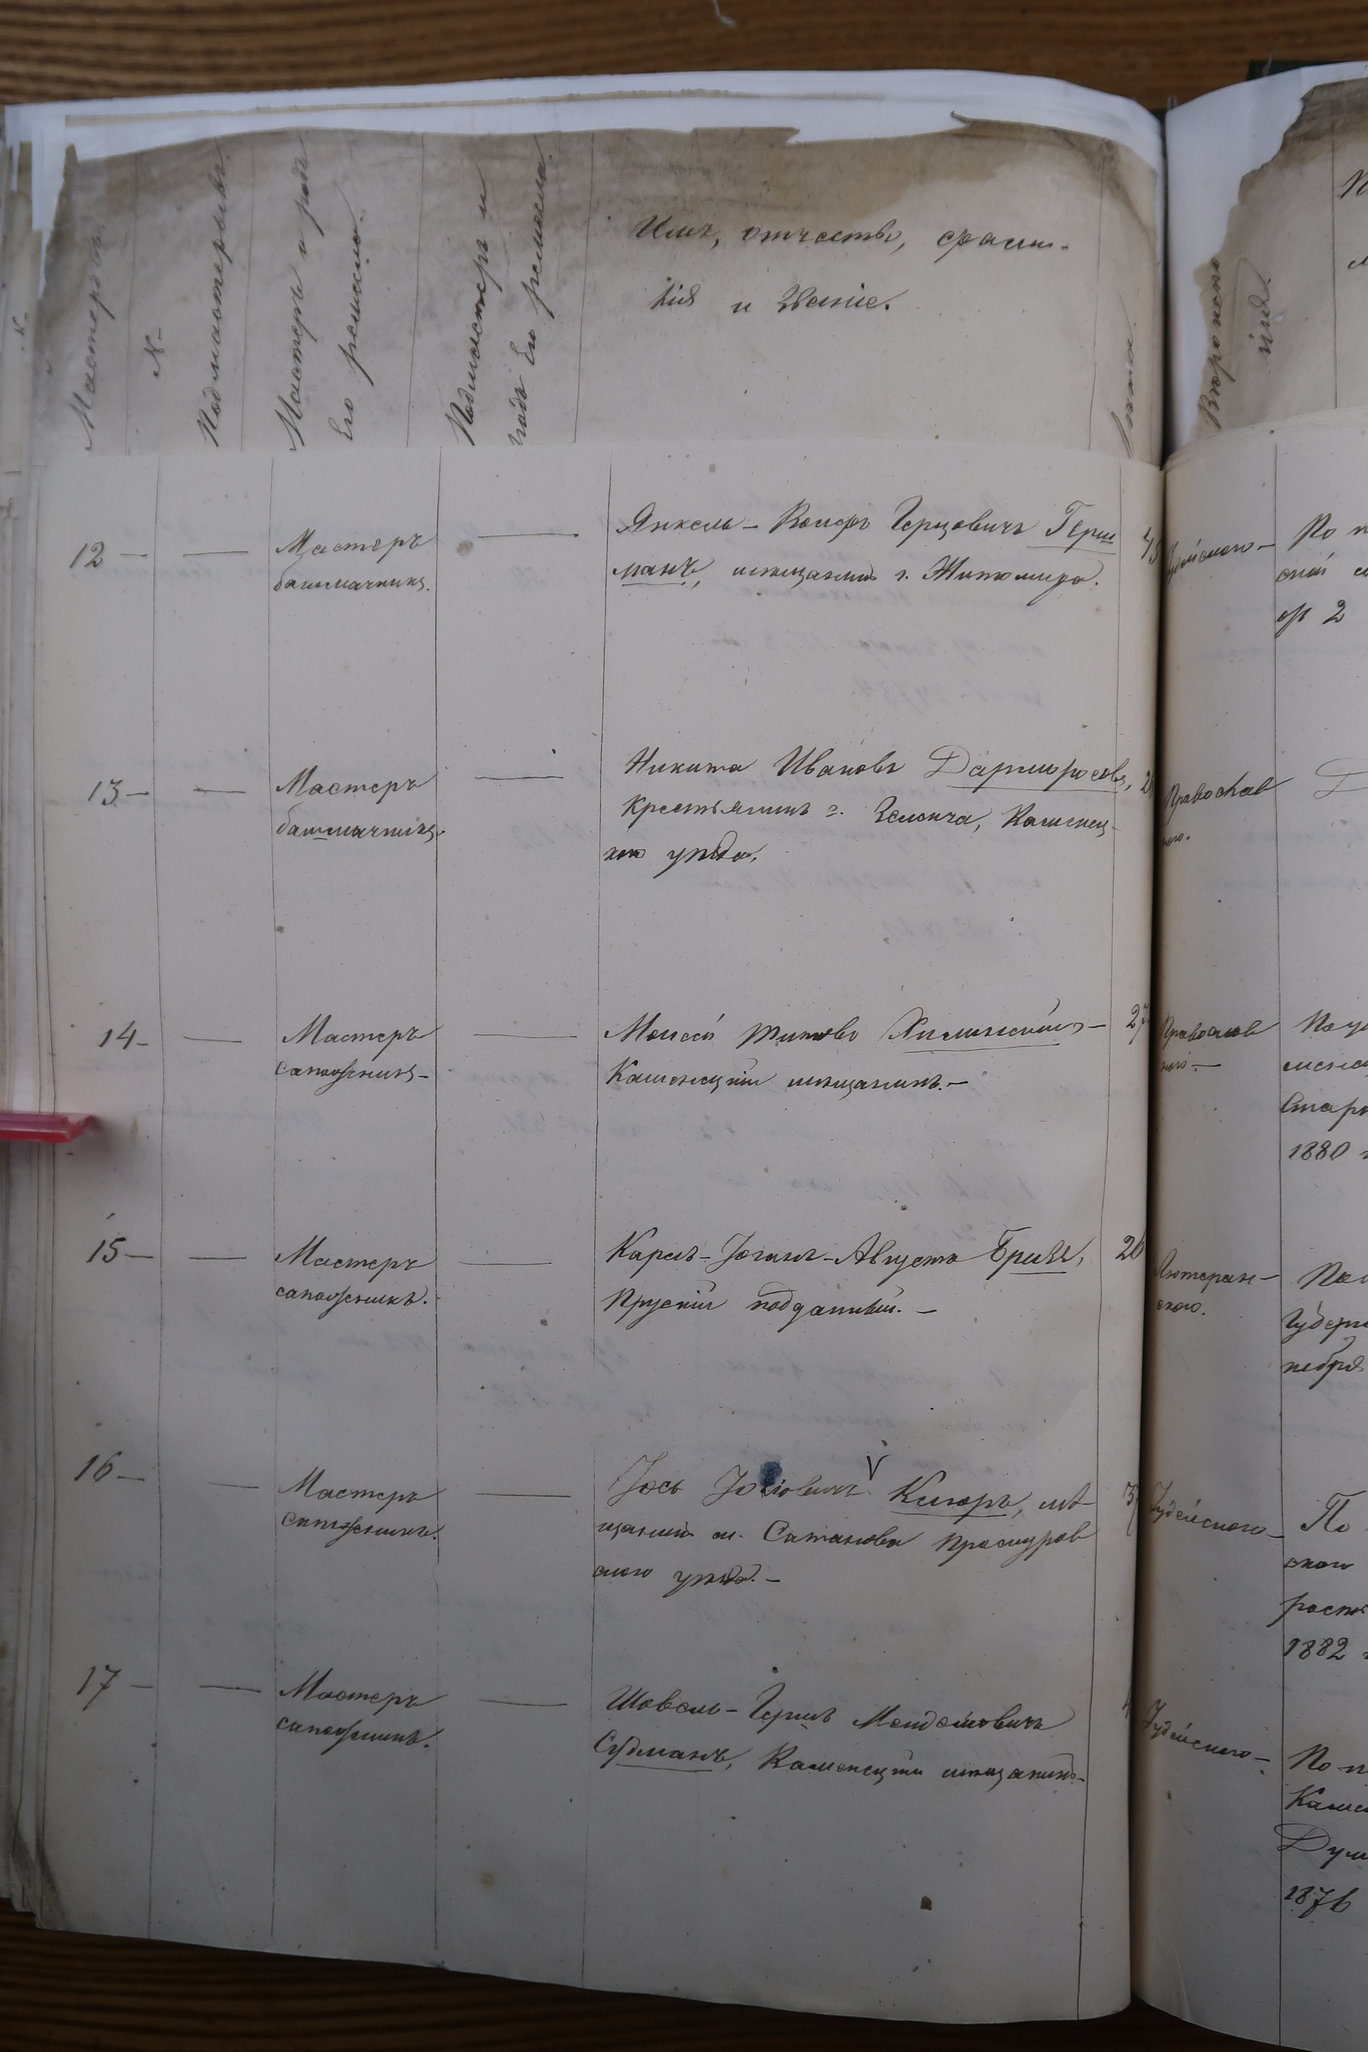 №
Мастеровъ.
№
Подмастерьевъ.
Мастеръ и родъ
его ремесла.
Подмастеръ и
родъ его ремесла.
Имя, отчество, фами-
лія и званіе.
Лѣта
Вѣроисповѣ
нія.
12 — — Мастеръ
башмачникъ.
— Янкель - Герцовичъ Герш
манъ, мѣщанинъ г. Житомира.
45
Іудейского —
По п
ской
ря 2
13 — — Мастеръ
башмачникъ.
— Никита Ивановъ
крестьянинъ с. Каменец-
каго уѣзда.
Православ
наго.
14 — — Мастеръ
сапожникъ —
— Моисей Титовъ Хилинскій, —
Каменецкій мѣщанинъ. —
27
Православ
наго. —
1880 г
15 — — Мастеръ
сапожникъ.
— Карлъ - Іоганъ - Августъ
Прускій подданный. —
26
Лютеран-
скаго.
Губерн
16 — — Мастеръ
сапожникъ.
— Іось V мѣ-
щанинъ м. Сатанова Проскуров
скаго уѣзда. —
Іудейского —
По
ской
1882 г
17 — — Мастеръ
сапожникъ.
— Шовель - Гершъ Менделовичъ
Судманъ, Каменецкій мѣщанинъ. —
Іудейского —
По п
Камен
Дум
1876